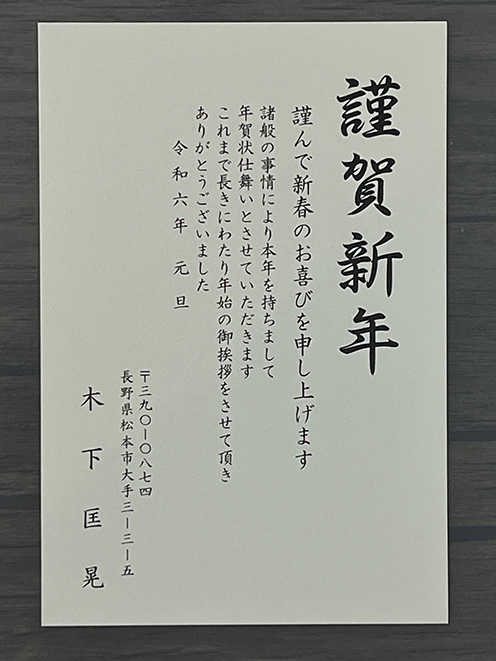 謹賀新年
謹んで新春のお喜びを申し上げます
諸般の事情により本年を持ちまして
年賀状仕舞いとさせていただきます
これまで長きにわたり年始の御挨拶をさせて頂き
ありがとうございました
令和六年 元旦
〒三九〇ー〇八七四
長野県松本市大手三ー三ー五
木下匡晃